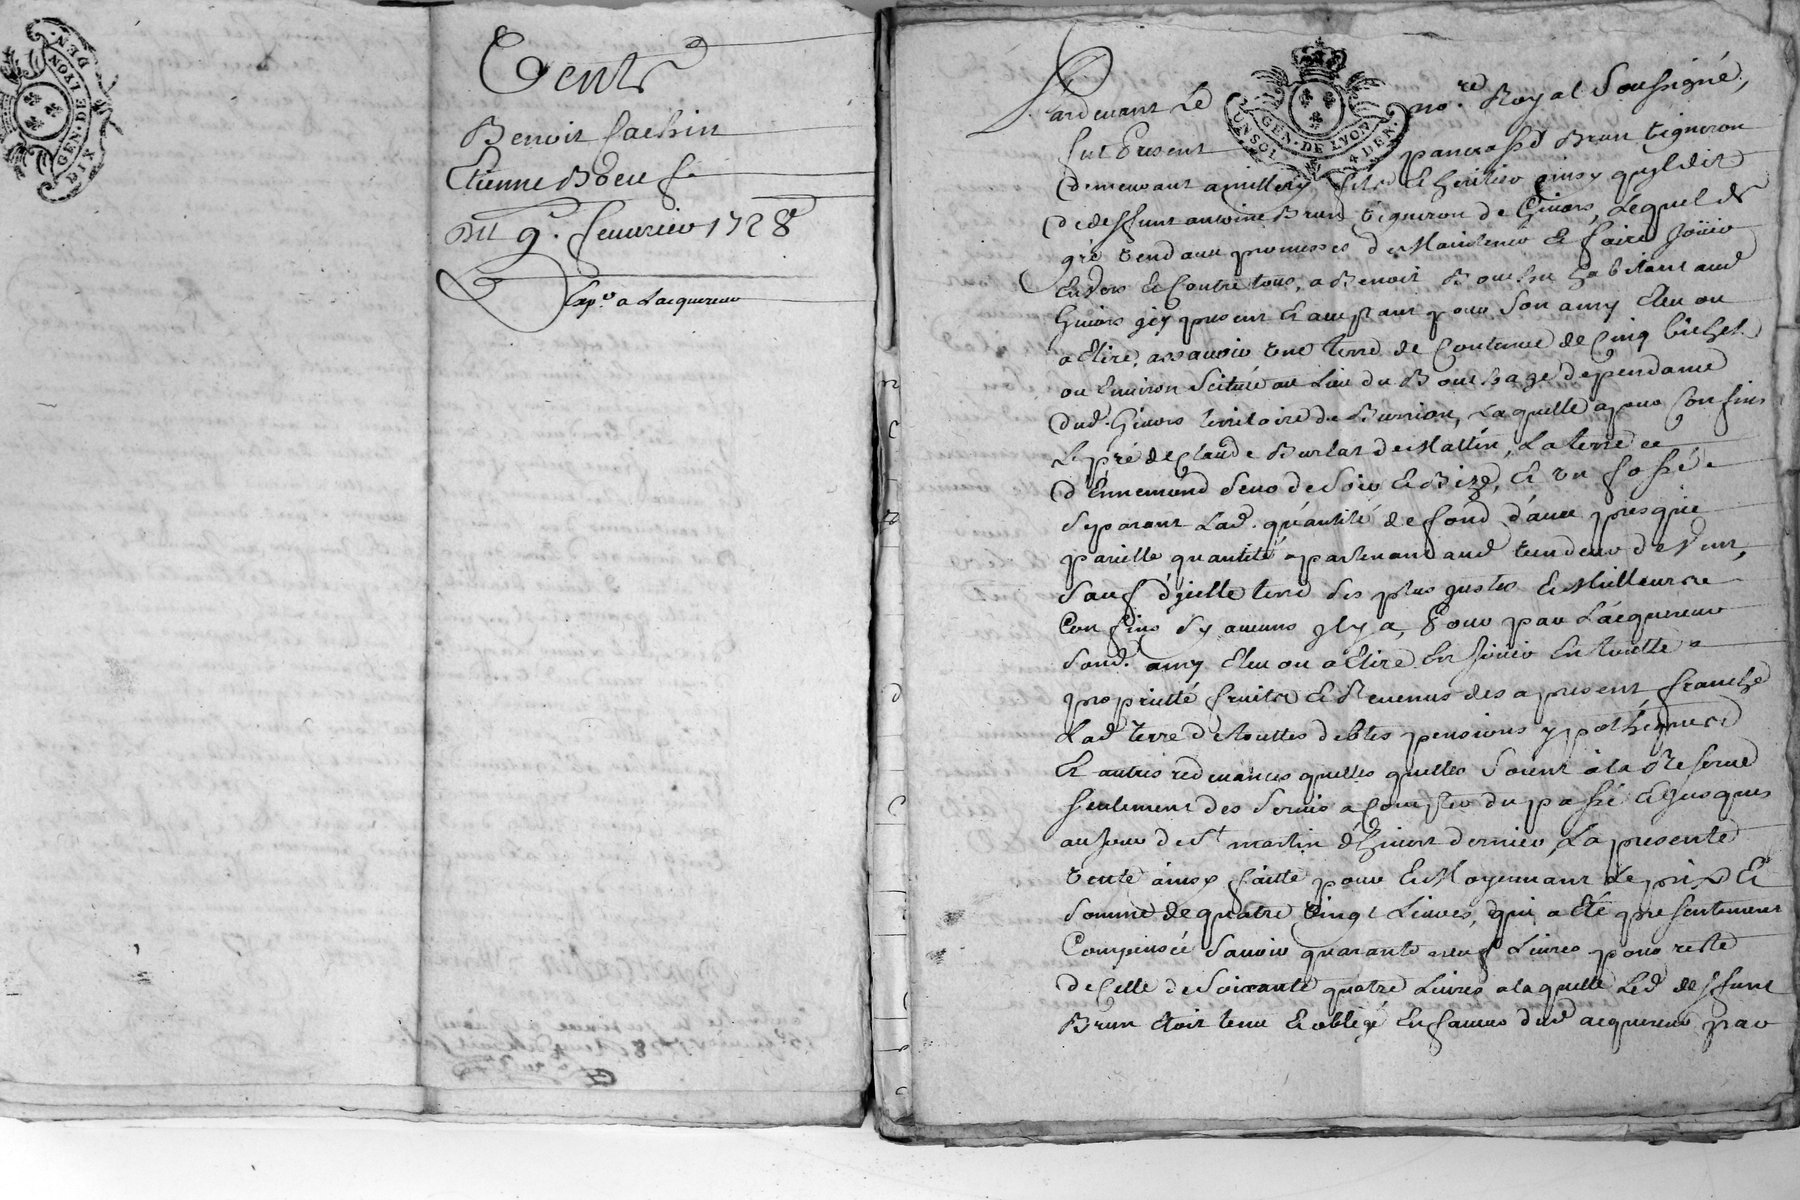 DIX
GEN·DE·LYON
DEN·
Vente
Benoit Cachin
Etienne Boeuf
Du 9e. feuvrier 1728
Exp.ée a Lacquereur
Pardevant Le no.re Royal Soussigné,
UN SOL
GEN·DE LYON
4 DEN·
fut Present pancrasse Brun vigneron
demeurant a millery fils & heritier ainsy quyl dit
de deffunt antoine Brun vigneron de Givors, Lequel de
gré vend aux promesses de Maintenir & faire joüir
Envers & Contre tous, a Benoit habitant aud
Givors jcy present & acceptant pour Son amy Eleu ou
a Elire, assavoir une terre de Contenue de Cinq bichet
ou Environ Scituée au Lieu du Bouchage dependance
dud. Givors territoire du, Laquelle a pour Confins
Le pré de Claude Burlat de Matin, La terre
d'Ennemond de Soir & Bize, & un fossé
Separant Lad. quantité de fond d'avec presque
pareille quantité apartenant aud vendeur de Vent,
Sauf d'jcelle terre Ses plus justes & Meilleures
Confins Sy aucuns jl y a, Pour par L'acquereur
Sond. amy Eleu ou a Elire En joüir En toutte
proprieté fruits & Revenus des apresent franche
Lad terre de touttes debtes pensions ypotheques
Et autres redevances quelles quelles Soient à la Reserve
Seulement des Servis a Compter du passé & jusques
au jour de St martin d'hivert dernier, La presente
vente ainsy faitte pour & Moyennant Le prix &
Somme de quatre vingt Livres, qui a Eté presentement
Compensée Savoir quarante neuf Livres pour reste
de Celle de Soixante quatre Livres a laquelle Led deffunt
Brun Etoit tenu & obligé En faveur dud acquereur par